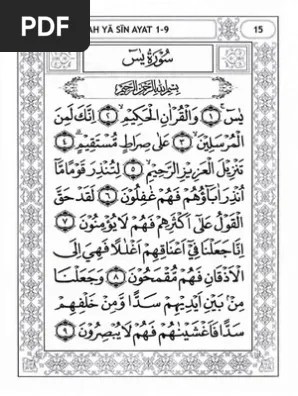 PDF
AH YĀ SĪN AYAT 1-9
15
سُوْرَةُ يٰسٓ
بِسْمِ اللّٰهِ الرَّحْمٰنِ الرَّحِيْمِ
يٰسٓ ۝١ وَالْقُرْاٰنِ الْحَكِيْمِ ۝٢ اِنَّكَ لَمِنَ
الْمُرْسَلِيْنَ ۝٣ عَلٰى صِرَاطٍ مُّسْتَقِيْمٍ ۝٤
تَنْزِيْلَ الْعَزِيْزِ الرَّحِيْمِ ۝٥ لِتُنْذِرَ قَوْمًا مَّا
اُنْذِرَ اٰبَآؤُهُمْ فَهُمْ غٰفِلُوْنَ ۝٦ لَقَدْ حَقَّ
الْقَوْلُ عَلٰٓى اَكْثَرِهِمْ فَهُمْ لَا يُؤْمِنُوْنَ ۝٧
اِنَّا جَعَلْنَا فِيْٓ اَعْنَاقِهِمْ اَغْلٰلًا فَهِيَ اِلَى
الْاَذْقَانِ فَهُمْ مُّقْمَحُوْنَ ۝٨ وَجَعَلْنَا
مِنْۢ بَيْنِ اَيْدِيْهِمْ سَدًّا وَّمِنْ خَلْفِهِمْ
سَدًّا فَاَغْشَيْنٰهُمْ فَهُمْ لَا يُبْصِرُوْنَ ۝٩